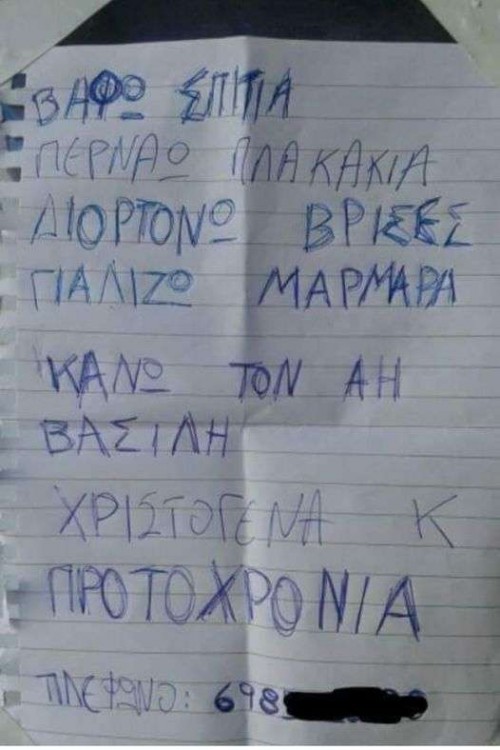 ΒΑΦΩ ΣΠΙΤΙΑ
ΠΕΡΝΑΩ ΠΛΑΚΑΚΙΑ
ΔΙΟΡΤΟΝΩ ΒΡΙΣΕΣ
ΓΙΑΛΙΖΩ ΜΑΡΜΑΡΑ
ΚΑΝΩ ΤΟΝ ΑΗ
ΒΑΣΙΛΗ
ΧΡΙΣΤΟΓΕΝΑ Κ
ΠΡΟΤΟΧΡΟΝΙΑ
ΤΙΛΕΦΩΝΟ: 698